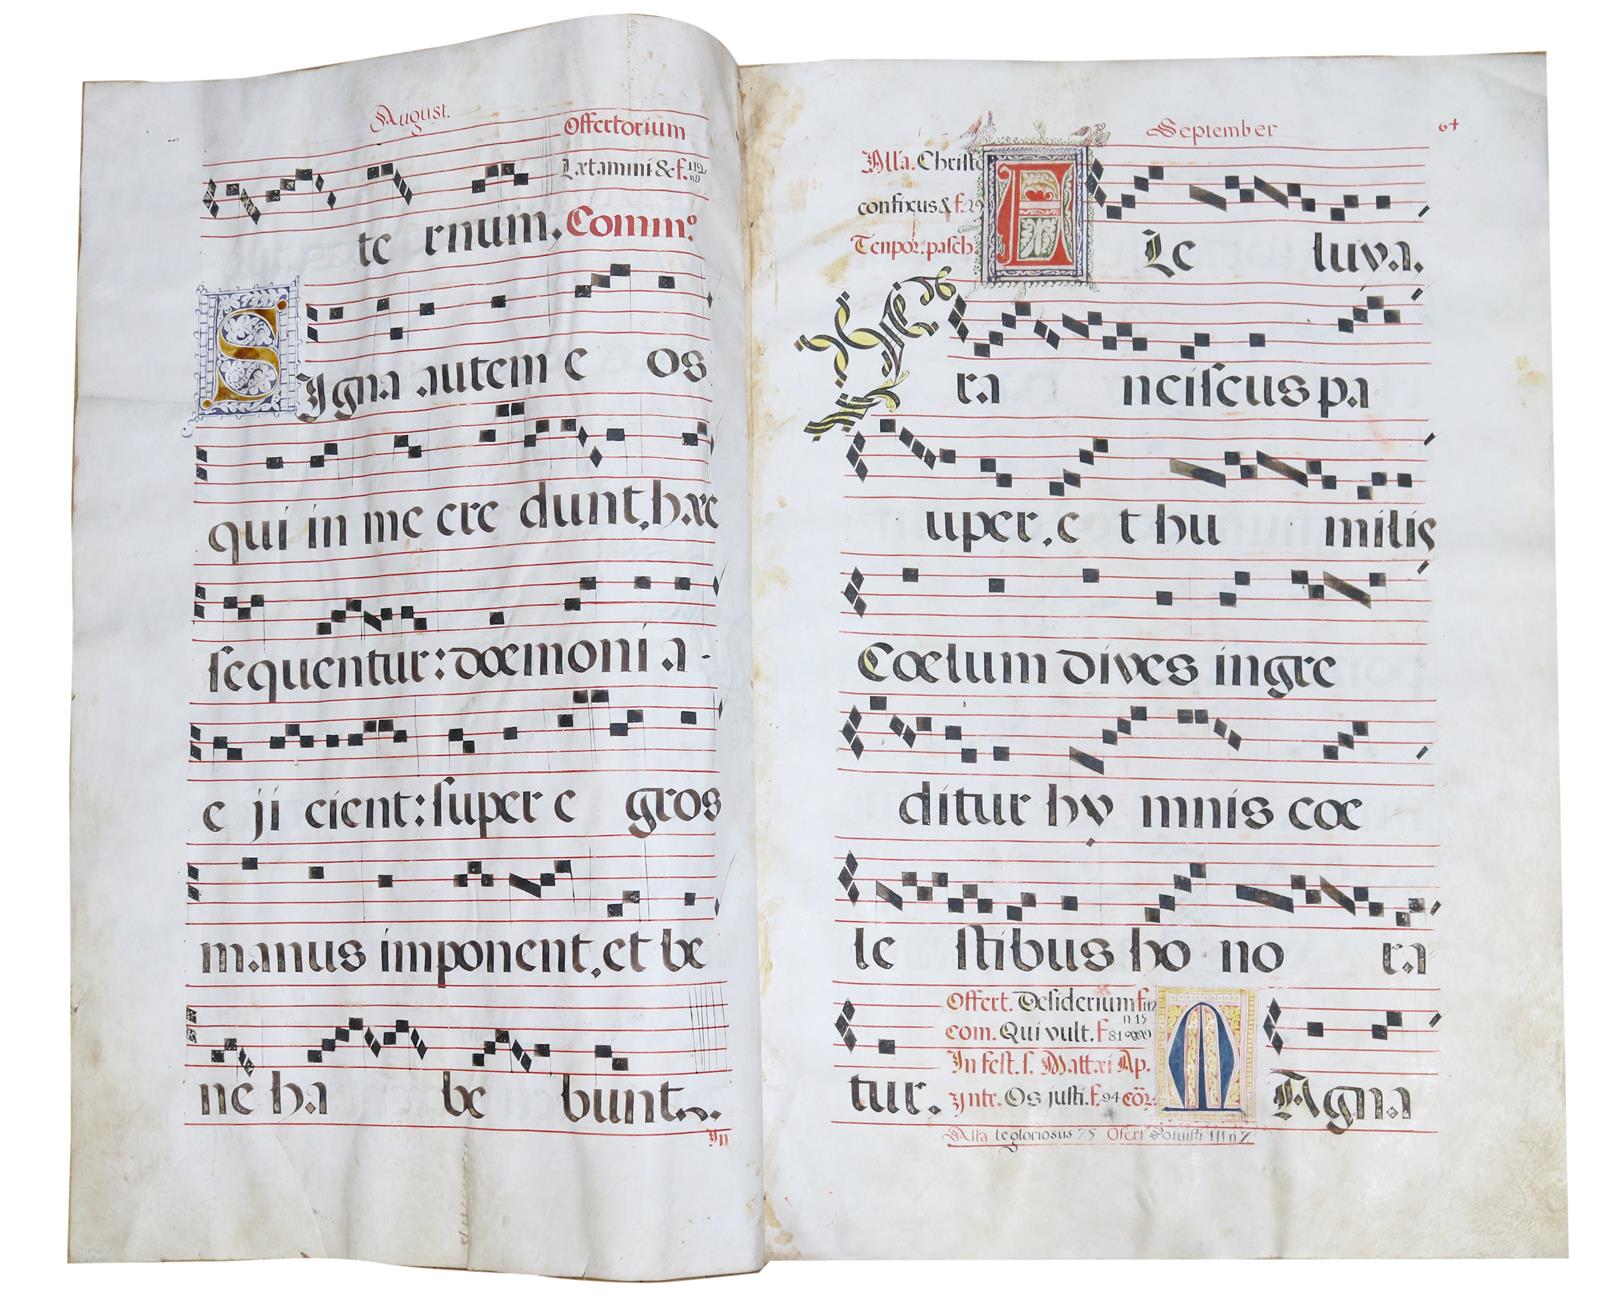 August.
Offertorium
Lætamini & f. 119
te rnum. Comm.o
SIgna autem e os
qui in me cre dunt, hæc
sequentur: dœmoni a-
e ji cient: super e gros
manus imponent, et be
ne ha be bunt.
In
September
64
Alla. Christo
confixus & f. 29
Tenpor. pasch
A Le luya.
Fra nciscus pa
uper, e t hu milis
Cœlum dives ingre
ditur hy mnis cœ
le stibus ho no ra
Offert. Desiderium f. 117
n 15
Com. Qui vult. f 81
In fest. s. Mattæi Ap.
tur. Intr. Os justi. f. 94 cõ. MAgna
Alla te gloriosus 75 Ofert Posuisti 111 n 7